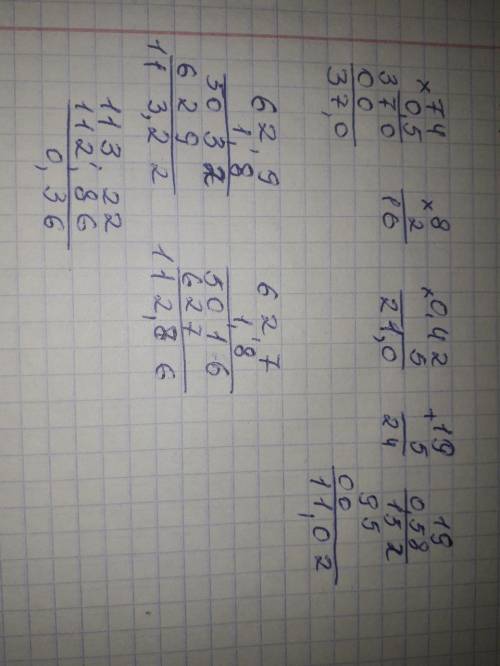 ×74
0,5
370
00
37,0
×8
2
16
×0,42
5
21,0
+19
5
24
19
0,58
152
95
00
11,02
62,9
1,8
5032
629
113,22
62,7
1,8
5016
627
112,86
113,22
112,86
0,36